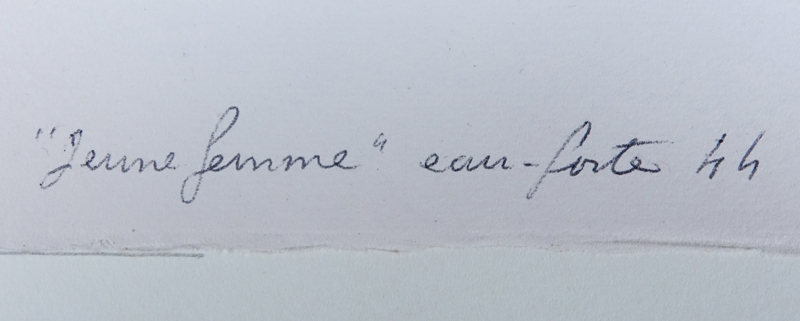 "Jeune femme" eau-forte 44